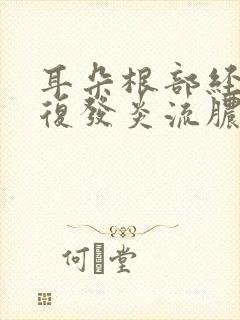 耳朵根部經
復發炎流膿
何堂